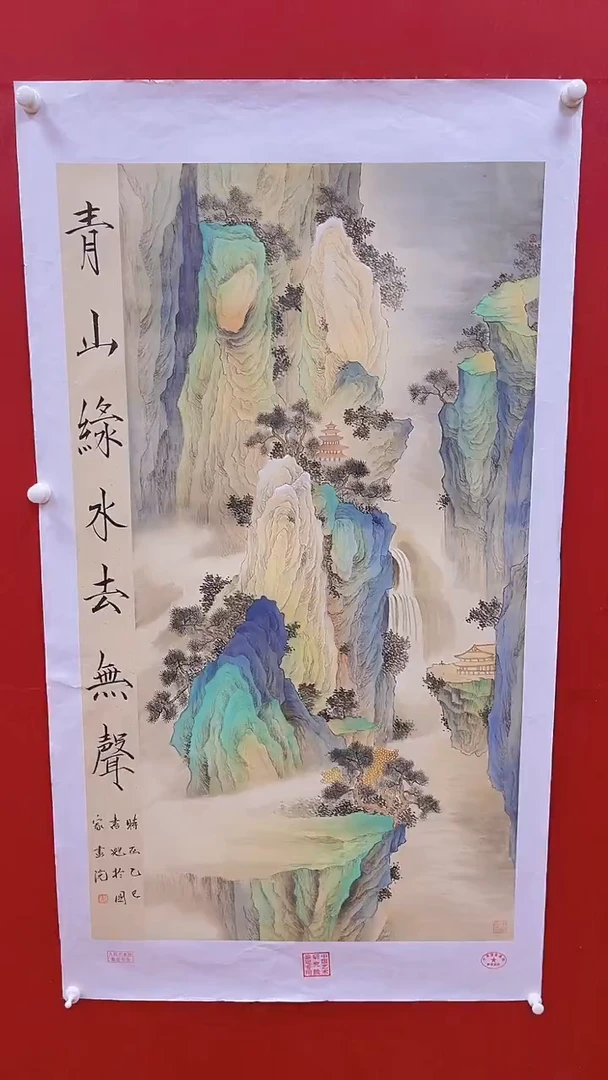 青山綠水去無聲
時在乙巳
於國
家畫院